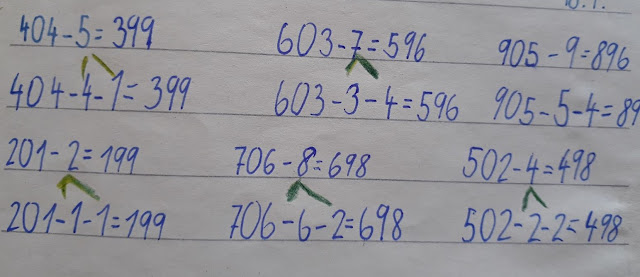 404-5=399 603-7=596 905-9=896
404-4-1=399 603-3-4=596 905-5-4=89
201-2=199 706-8=698 502-4=498
201-1-1=199 706-6-2=698 502-2-2=498